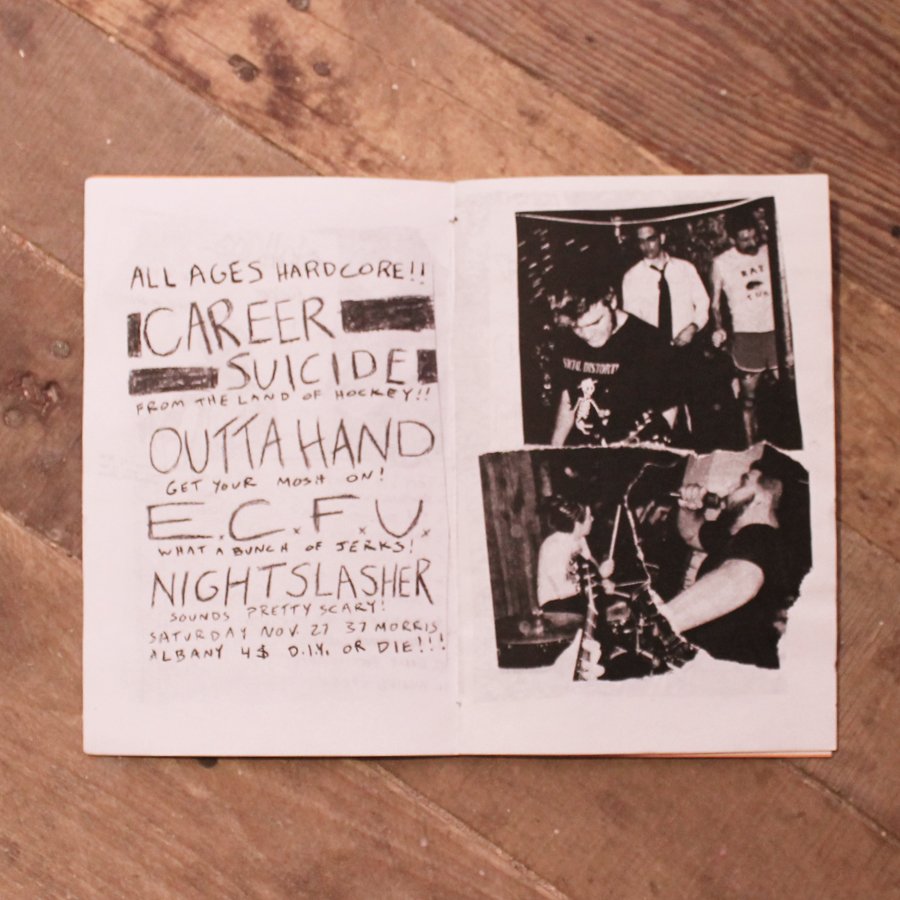 ALL AGES HARDCORE!!
CAREER
SUICIDE
FROM THE LAND OF HOCKEY!!
OUTTA HAND
GET YOUR MOSH ON!
E.C.F.U.
WHAT A BUNCH OF JERKS!
NIGHTSLASHER
SOUNDS PRETTY SCARY!
SATURDAY NOV. 27 37 MORRIS
ALBANY 4$ D.I.Y. OR DIE!!!
SOCIAL DISTORTION
RAT